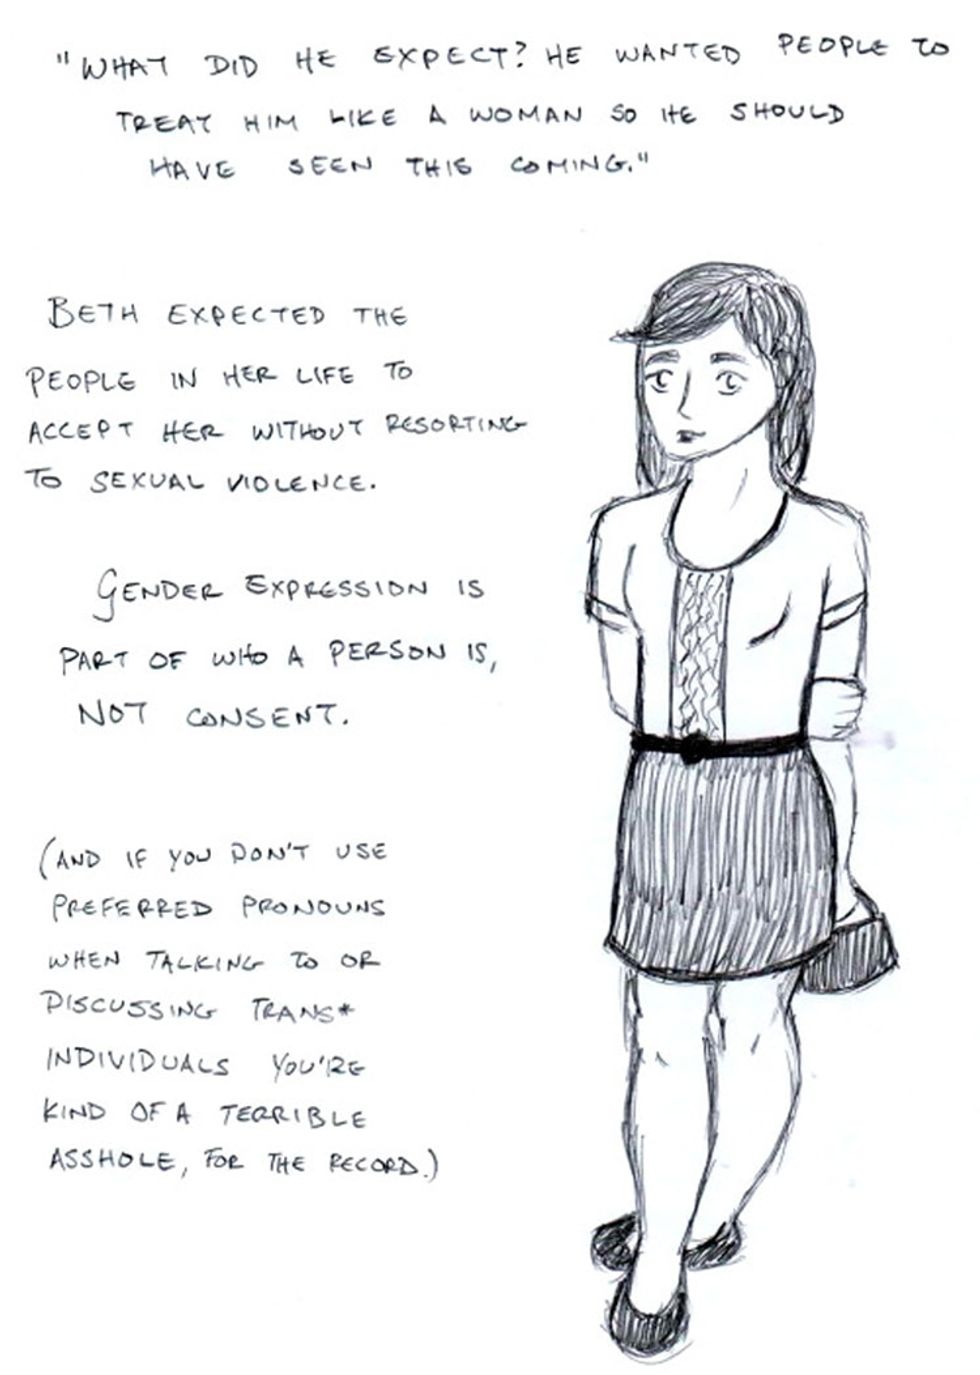 "WHAT DID HE EXPECT? HE WANTED PEOPLE TO
TREAT HIM LIKE A WOMAN SO HE SHOULD
HAVE SEEN THIS COMING."
BETH EXPECTED THE
PEOPLE IN HER LIFE TO
ACCEPT HER WITHOUT RESORTING
TO SEXUAL VIOLENCE.
GENDER EXPRESSION IS
PART OF WHO A PERSON IS,
NOT CONSENT.
(AND IF YOU DON'T USE
PREFERRED PRONOUNS
WHEN TALKING TO OR
DISCUSSING TRANS*
INDIVIDUALS YOU'RE
KIND OF A TERRIBLE
ASSHOLE, FOR THE RECORD.)